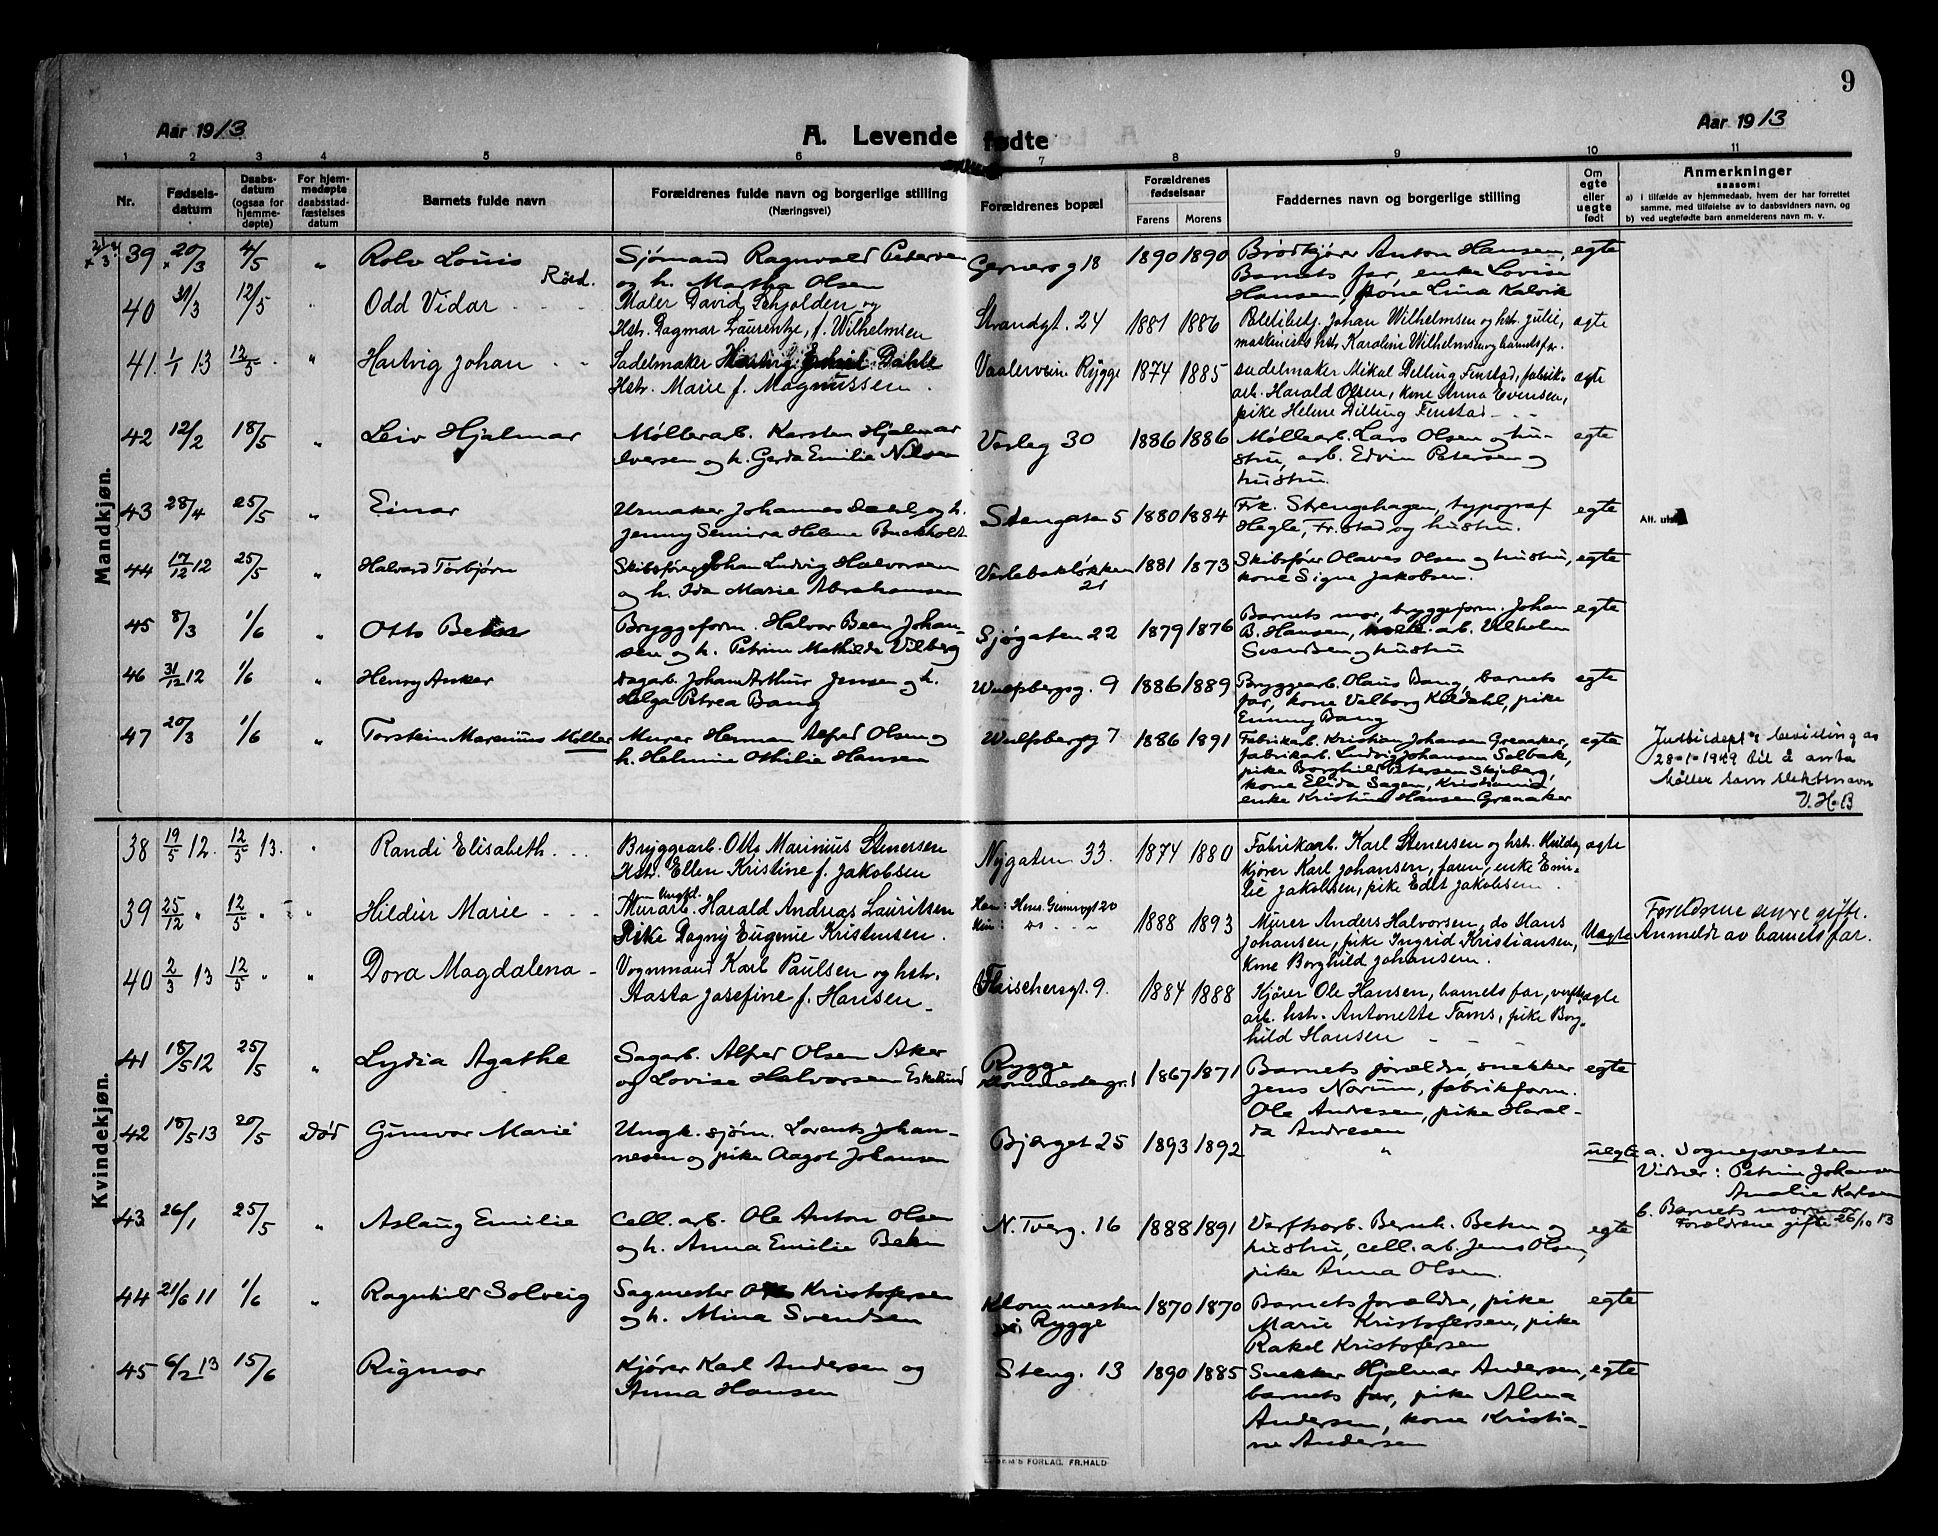 9
Aar 1913
A. Levende fødte
Aar 1913
1 2 3 4 5 6 7 8 9 10 11
Nr.
Fødselsdatum
Daabsdatum (ogsaa for hjemmedøpte)
For hjemmedøpte daabsstadfæstelses datum
Barnets fulde navn
Forældrenes fulde navn og borgerlige stilling
(Næringsvei)
Forældrenes bopæl
Forældrenes fødselsaar
Farens Morens
Faddernes navn og borgerlige stilling
Om egte eller uegte født
Anmerkninger
saasom:
a) i tilfælde av hjemmedaab, hvem der har forrettet samme, med tilføielse av to daabsvidners navn, og
b) ved uegtefødte barn anmelderens navn m. v.
Mandkjøn.
39 20/3 4/5 " Rolv Louis Sjømand Ragnvald Petersen
og h. Martha Olsen
Gernersg 18 1890 1890 Brødkjører Anton Hansen, egte
Barnets far, enke Lovise
Hansen, Lina Kalvik
40 31/3 12/5 " Odd Vidar Maler David Schjolden og
Hstr. Dagmar Laurentze, f. Wilhelmsen
Strandgt. 24 1881 1886 Johan Wilhelmsen og hst. Julie, egte
maskinists hstr Karoline Wilhelmsen og barnets far.
41. 1/1 13 12/5 " Hartvig Johan Sadelmaker Hartvig Dahle
Hstr. Marie f. Magnussen.
Vaalerveien Rygge 1874 1885 sadelmaker Mikal Dilling Finstad, fabrik- egte
arb. Harald Olsen, kone Anna Evensen,
pike Helene Dilling Finstad
42 12/2 18/5 " Leiv Hjalmar Møllerarb. Karsten Hjalmar
Iversen og h. Gerda Emilie Nilsen
Verleg 30 1886 1886 Møllearb. Lars Olsen og hu- egte
stru, arb. Edvin Petersen og
hustru.
43 28/4 25/5 " Einar Urmaker Johannes Dahl og h.
Jenny Semira Helene Buckholt
Stengaten 5 1880 1884 Frk. Strengehagen, typograf egte
Hegle, Fr.stad og hustru.
Att. uts
44 17/12 12 25/5 " Halvard Torbjørn Skibsfører Johan Ludvig Halvorsen
og h. Ida Marie Abrahamsen
Verlebakløkken 21 1881 1873 Skibsfører Olaves Olsen og hustru, egte
kone Signe Jakobsen.
45 8/3 1/6 " Otto Bryggeform. Halvar Been Johan-
sen og h. Petrine Mathilde Vilberg
Sjøgaten 22 1879 1876 Barnets mor, bryggeform. Johan egte
B. Hansen, arb. Vilhelm
Svendsen og hustru
46 31/12 12 1/6 " Henry Anker Sagarb. Johan Arthur Jensen og h.
Helga Petrea Bang
Wulfsbergsg. 9 1886 1889 Bryggearb. Olaus Bang, barnets egte
far, kone Valborg Kildahl, pike
Emmy Bang
47 20/3 1/6 " Torstein Marenius Møller Murer Herman Alfred Olsen og
h. Helmine Othilie Hansen
Wulfsbergsg 7 1886 1891 Fabrikarb. Kristian Johansen Greaaker, egte
fabrikarb. Ludvig Johansen Solbak,
pike Borghild Petersen Skjeberg,
kone Elida Sagen, Kristiania,
enke Kristine Hansen Greaaker
Justisdept's bevilling av
28-1-1949 til å anta
Møller som slektsnavn
V.H.B
Kvindekjøn.
38 19/5 12. 12/5 13. " Randi Elisabeth Bryggearb. Otto Marinius Stenersen
Hstr. Ellen Kristine f. Jakobsen
Nygaten 33. 1874 1880 Fabrikarb. Karl Stenersen og hst. Hulda, egte
kjører Karl Johansen, faren, enke Emi-
lie Jakobsen, pike Edit Jakobsen
39 25/12 " 12/5 " " Hildur Marie Ungkl.
Murarb. Harald Andreas Lauritsen
Pike Dagny Eugenie Kristensen.
1888 1893 Murer Anders Halvorsen, do Hans Uegte
Johansen, pike Ingrid Kristiansen,
Kone Borghild Johansen.
Forældrene senere gifte.
Anmeldt av barnets far.
40 2/3 13 12/5 " " Dora Magdalena Vognmand Karl Paulsen og hstr.
Aasta Josefine f. Hansen
Fleischersgt. 9. 1884 1888 Kjører Ole Hansen, barnets far, verfts- egte
arb. hstr. Antonette Tams, pike Borg-
hild Hansen
41 18/5 12 25/5 " Lydia Agathe Sagarb. Alfred Olsen Aker
og Lovise Halvorsen Eskelund
Rygge
1867 1871 Barnets forældre, snekker egte
Jens Norum, fabrikform.
Ole Andresen, pike Haral-
da Andresen
42 18/5 13 20/5 Død Gunvor Marie Ungk. sjøm. Lorents Johan-
nesen og pike Aagot Johansen
Bjerget 25 1893 1892 " uegte
a. Sognepresten
Vidner: Petrine Johansen
Amalie Karlsen
b. Barnets mormor
Forældrene gifte 26/10 13
43 26/1 25/5 " Aslaug Emilie Cell. arb. Ole Anton Olsen
og h. Anna Emilie Beken
N. Tverg. 16 1888 1891 Verftsarb. Bernh. Beken og egte
hustru, cell. arb. Jens Olsen,
pike Anna Olsen.
44 21/6 11 1/6 " Ragnhild Solveig Sagmester Kristofersen
og h. Mina Svendsen
Klommesten
i Rygge
1870 1870 Barnets forældre, pike egte
Marie Kristofersen, pike
Rakel Kristofersen
45 6/2 13 15/6 Rigmor Kjører Karl Andersen og
Anna Hansen
Steng. 13 1890 1885 Snekker Hjalmar Andersen, egte
barnets far, pike Alma
Andersen, kone Kristia-
ne Andersen
FORLAG, FR.HALD